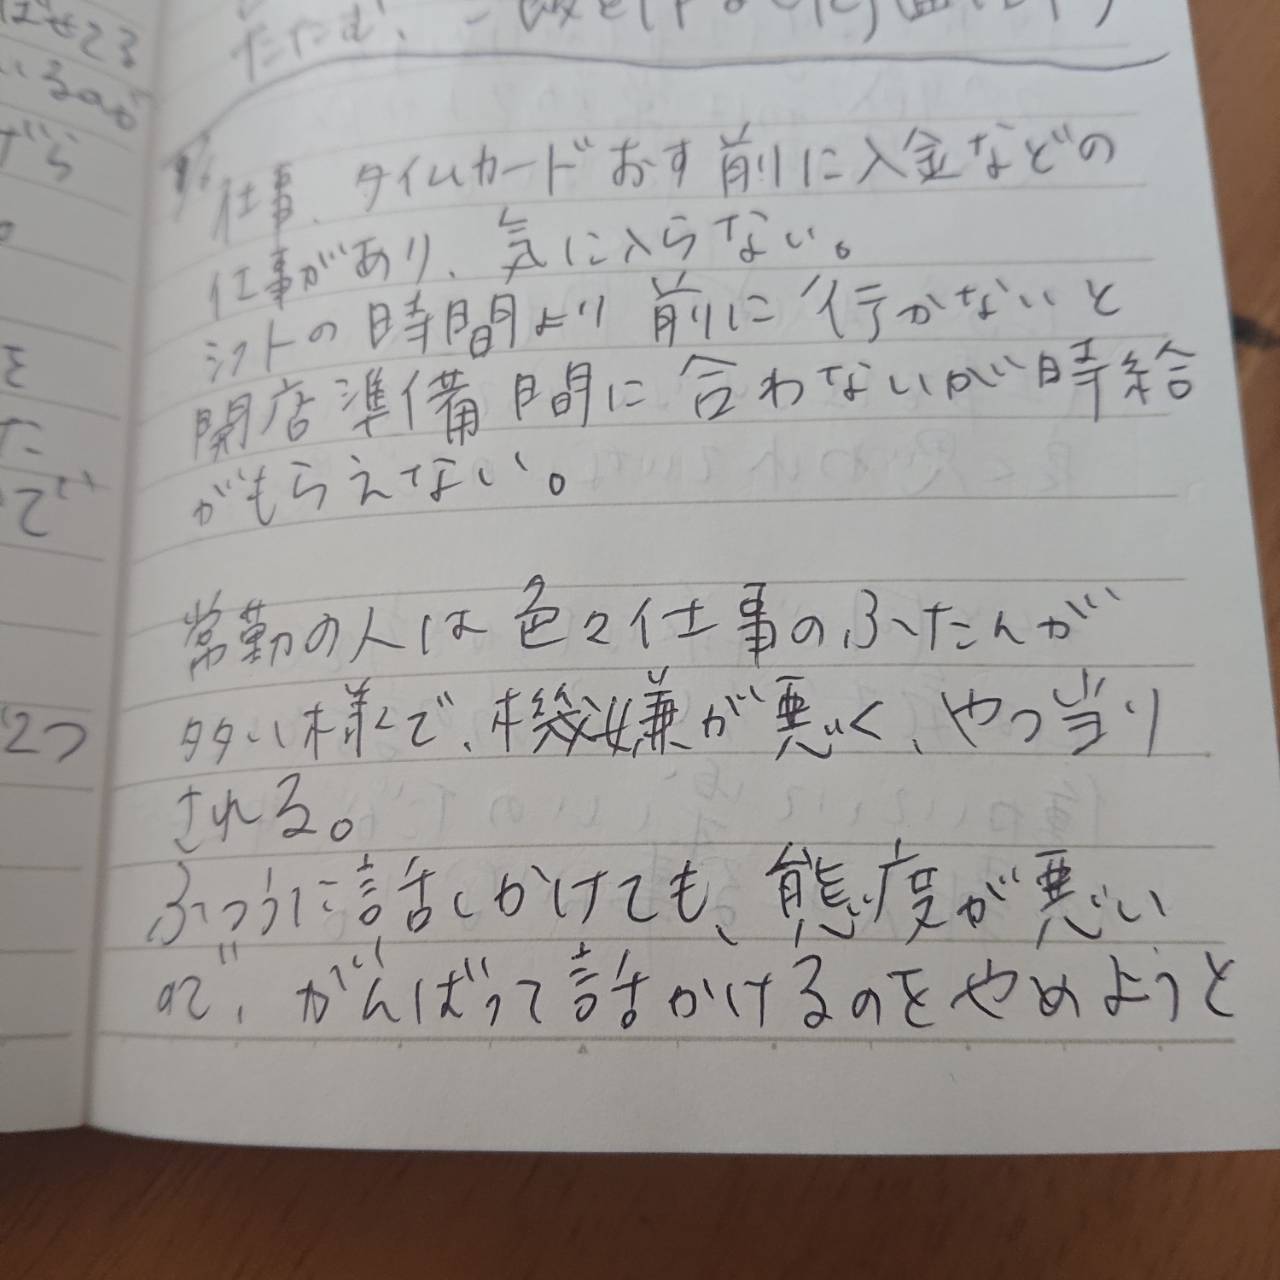 ばせる
いるのが
ずら
を
た
で
2つ
たたむ、
仕事、タイムカードおす前に入金などの
仕事があり、気に入らない。
シフトの時間より前に行かないと
開店準備間に合わないが時給
がもらえない。
常勤の人は色々仕事のふたんが
多い様で、機嫌が悪く、やつ当り
される。
ふつうに話しかけても、態度が悪い
ので、がんばって話かけるのをやめようと